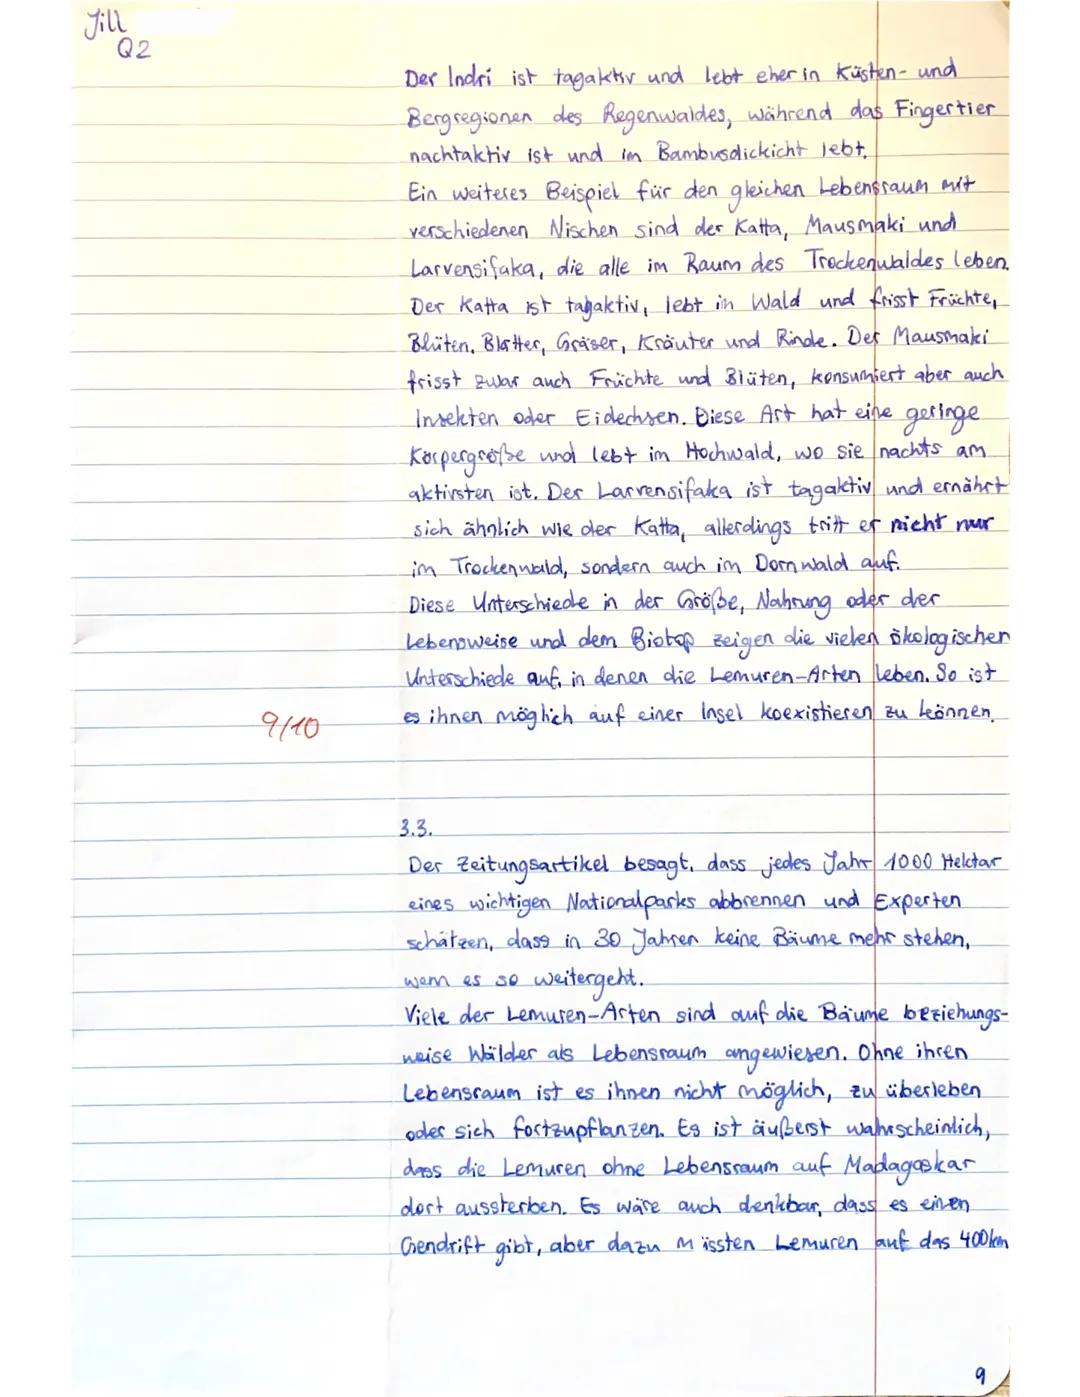 Jill
Q2
Der Indri ist tagaktiv und lebt eher in Küsten- und
Bergregionen des Regenwaldes, während das Fingertier
nachtaktiv ist und im Bambusdickicht lebt.
Ein weiteres Beispiel für den gleichen Lebensraum mit
verschiedenen Nischen sind der Katta, Mausmaki und
Larvensifaka, die alle im Raum des Trockenwaldes leben.
Der Katta ist tagaktiv, lebt in Wald und frisst Früchte,
Blüten, Blätter, Gräser, Kräuter und Rinde. Der Mausmaki
frisst zwar auch Früchte und Blüten, konsumiert aber auch
Insekten oder Eidechsen. Diese Art hat eine geringe
Körpergröße und lebt im Hochwald, wo sie nachts am
aktivsten ist. Der Larvensifaka ist tagaktiv und ernährt
sich ähnlich wie der Katta, allerdings tritt er nicht nur
im Trockenwald, sondern auch im Dornwald auf.
Diese Unterschiede in der Größe, Nahrung oder der
Lebensweise und dem Biotop zeigen die vielen ökologischen
Unterschiede auf, in denen die Lemuren-Arten leben. So ist
es ihnen möglich auf einer Insel koexistieren zu können.
9/10
3.3.
Der Zeitungsartikel besagt, dass jedes Jahr 1000 Hektar
eines wichtigen Nationalparks abbrennen und Experten
schätzen, dass in 30 Jahren keine Bäume mehr stehen,
wenn es so weitergeht.
Viele der Lemuren-Arten sind auf die Bäume beziehungs-
weise Wälder als Lebensraum angewiesen. Ohne ihren
Lebensraum ist es ihnen nicht möglich, zu überleben
oder sich fortzupflanzen. Es ist äußerst wahrscheinlich,
dass die Lemuren ohne Lebensraum auf Madagaskar
dort aussterben. Es wäre auch denkbar, dass es einen
Gendrift gibt, aber dazu müssten Lemuren auf das 400km
9